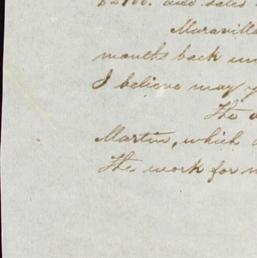 and sales
Maravilla
months back
I believe may
The
Martin, which
The work for